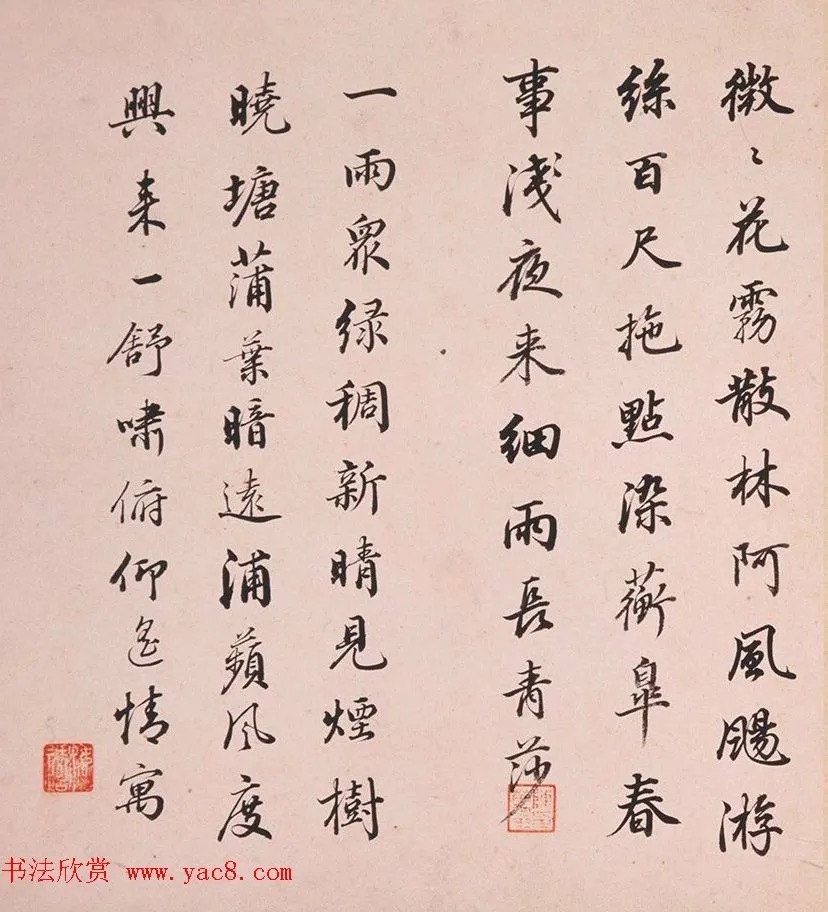 微〻花霧散林阿風颺游
絲百尺拖點染蘅皋春
事淺夜来细雨長青莎
一雨眾绿稠新晴見煙樹
曉塘蒲葉暗遠浦蘋风度
興来一舒嘯俯仰遙情寓
书法欣赏 www.yac8.com